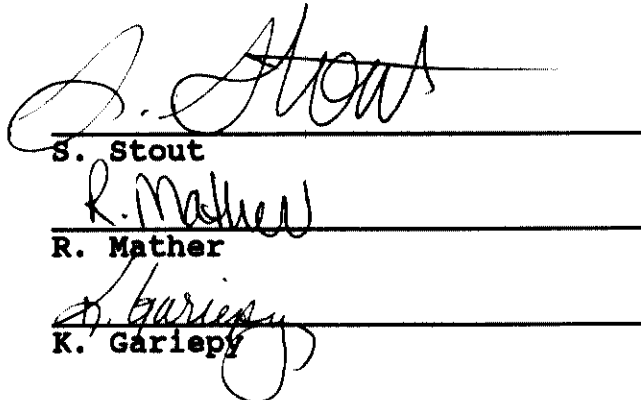 S. Stout
S. Stout
R. Mather
R. Mather
K. Gariepy
K. Gariepy